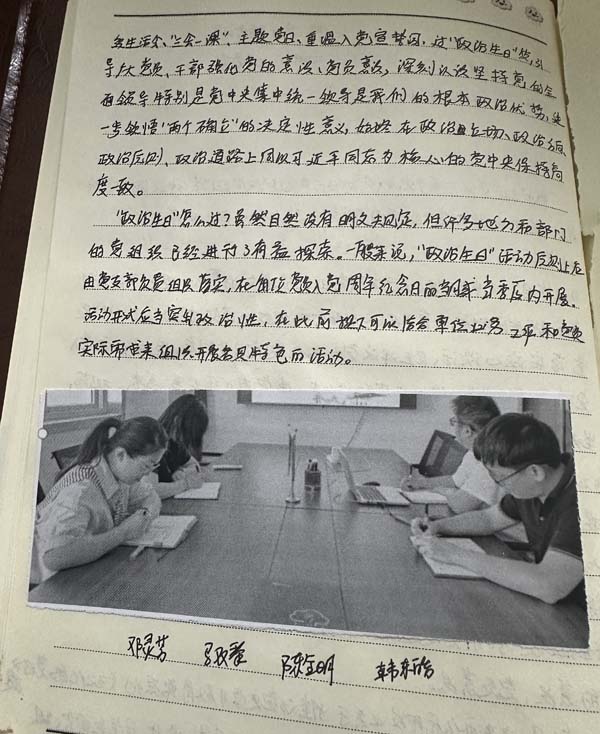 员生活会、“三会一课”、主题党日、重温入党宣誓词、过“政治生日”等，引
导广大党员、干部强化党的意识、党员意识，深刻认识坚持党的全
面领导特别是党中央集中统一领导是我们的根本政治优势，进
一步领悟“两个确立”的决定性意义，始终在政治立场、政治方向
政治原则、政治道路上同以习近平同志为核心的党中央保持高
度一致。
“政治生日”怎么过？虽然目前没有明文规定，但许多地方和部门
的党组织已经进行了有益探索。一般来说，“政治生日”活动原则上应
由党支部负责组织落实，在每位党员入党周年纪念日的当月或当季度内开展。
活动形式应当突出政治性，在此前提下可以结合单位业务工作和党员
实际需要来组织开展各具特色的活动。
邓灵芳 陈全明 韩东皓